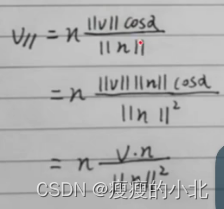 v// = n ||v|| cosα / ||n||
= n ||v|| ||n|| cosα / ||n||²
= n v·n / ||n||²
CSDN @瘦瘦的小北